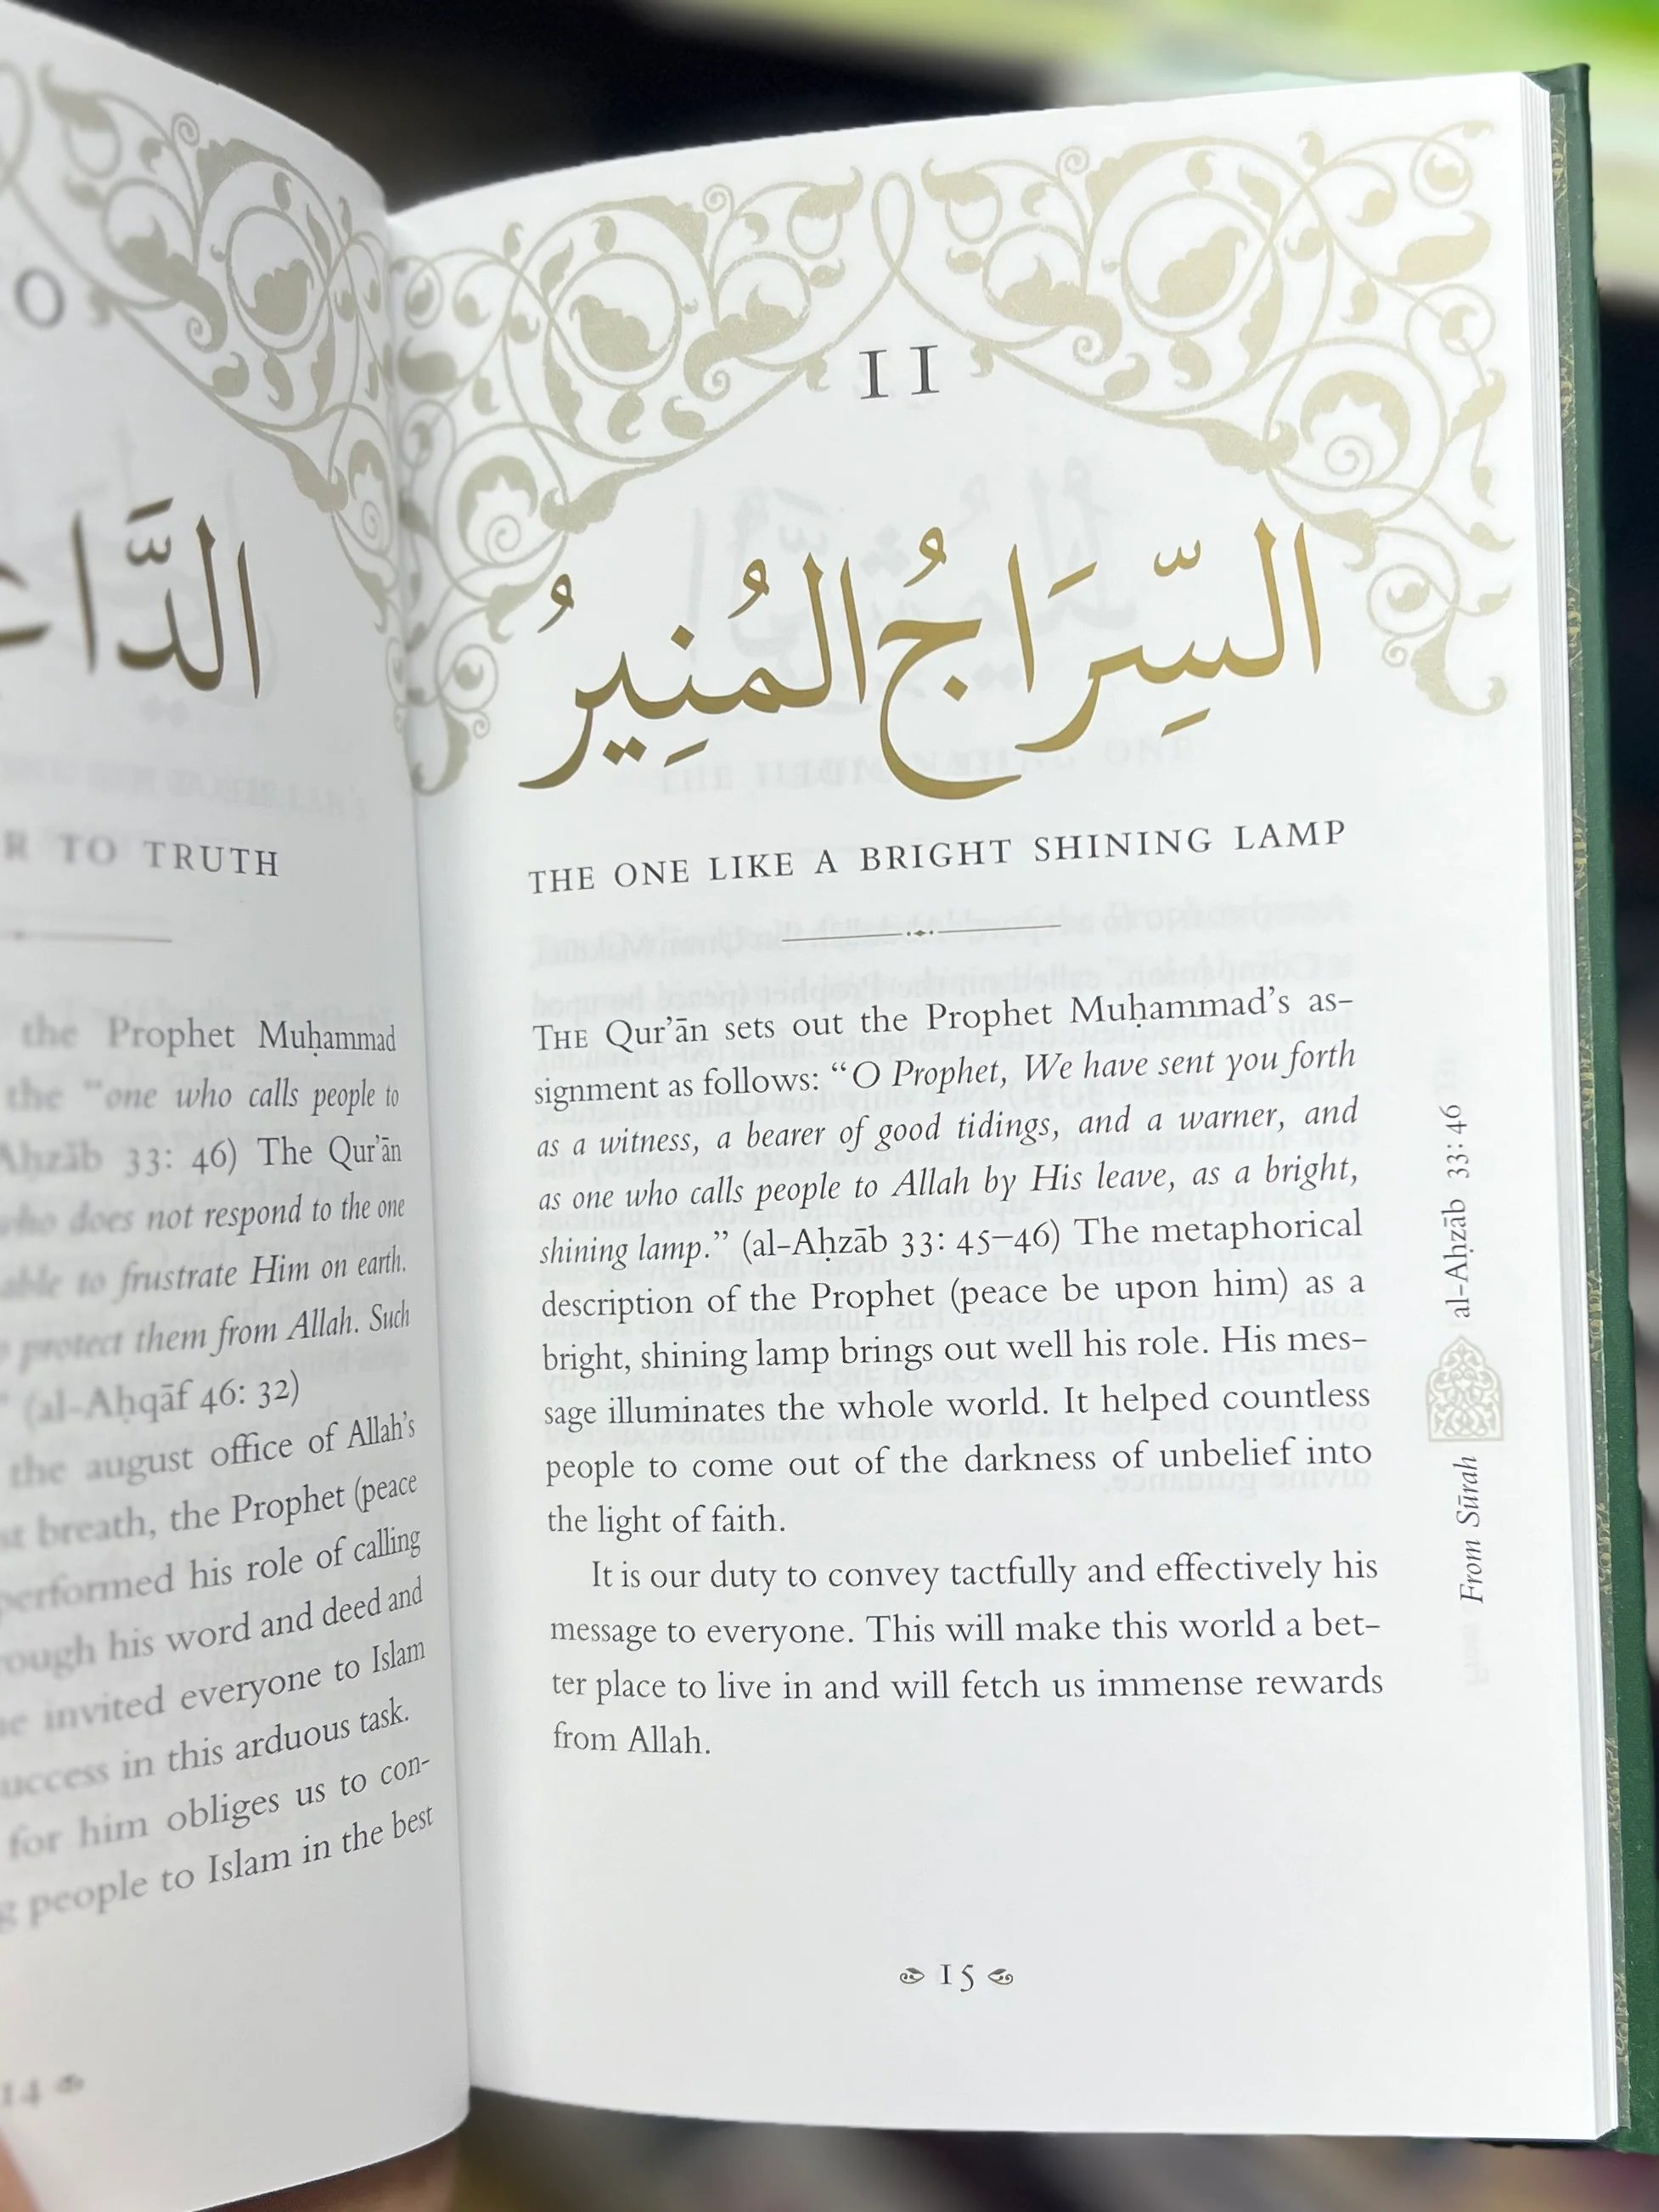 O
الدَّا
R TO TRUTH
the Prophet Muḥammad
the "one who calls people to
Aḥzāb 33: 46) The Qur'ān
who does not respond to the one
able to frustrate Him on earth.
protect them from Allah. Such
" (al-Aḥqāf 46: 32)
the august office of Allah's
st breath, the Prophet (peace
performed his role of calling
rough his word and deed and
he invited everyone to Islam
success in this arduous task.
for him obliges us to con-
g people to Islam in the best
14
11
السِّرَاجُ المُنِيرُ
THE ONE LIKE A BRIGHT SHINING LAMP
THE Qur'ān sets out the Prophet Muḥammad's as-
signment as follows: "O Prophet, We have sent you forth
as a witness, a bearer of good tidings, and a warner, and
as one who calls people to Allah by His leave, as a bright,
shining lamp." (al-Aḥzāb 33: 45–46) The metaphorical
description of the Prophet (peace be upon him) as a
bright, shining lamp brings out well his role. His mes-
sage illuminates the whole world. It helped countless
people to come out of the darkness of unbelief into
the light of faith.
It is our duty to convey tactfully and effectively his
message to everyone. This will make this world a bet-
ter place to live in and will fetch us immense rewards
from Allah.
15
From Sūrah al-Aḥzāb 33:46